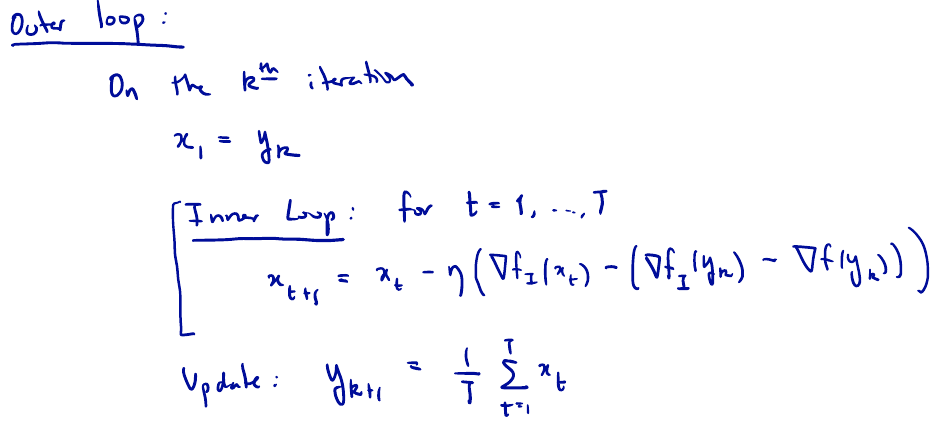 Outer loop :
On the kth iteration
x_1 = y_k
Inner Loop : for t = 1, ..., T
x_{t+1} = x_t - η(∇f_I(x_t) - (∇f_I(y_k) - ∇f(y_k)))
Update : y_{k+1} = 1/T Σ_{t=1}^T x_t